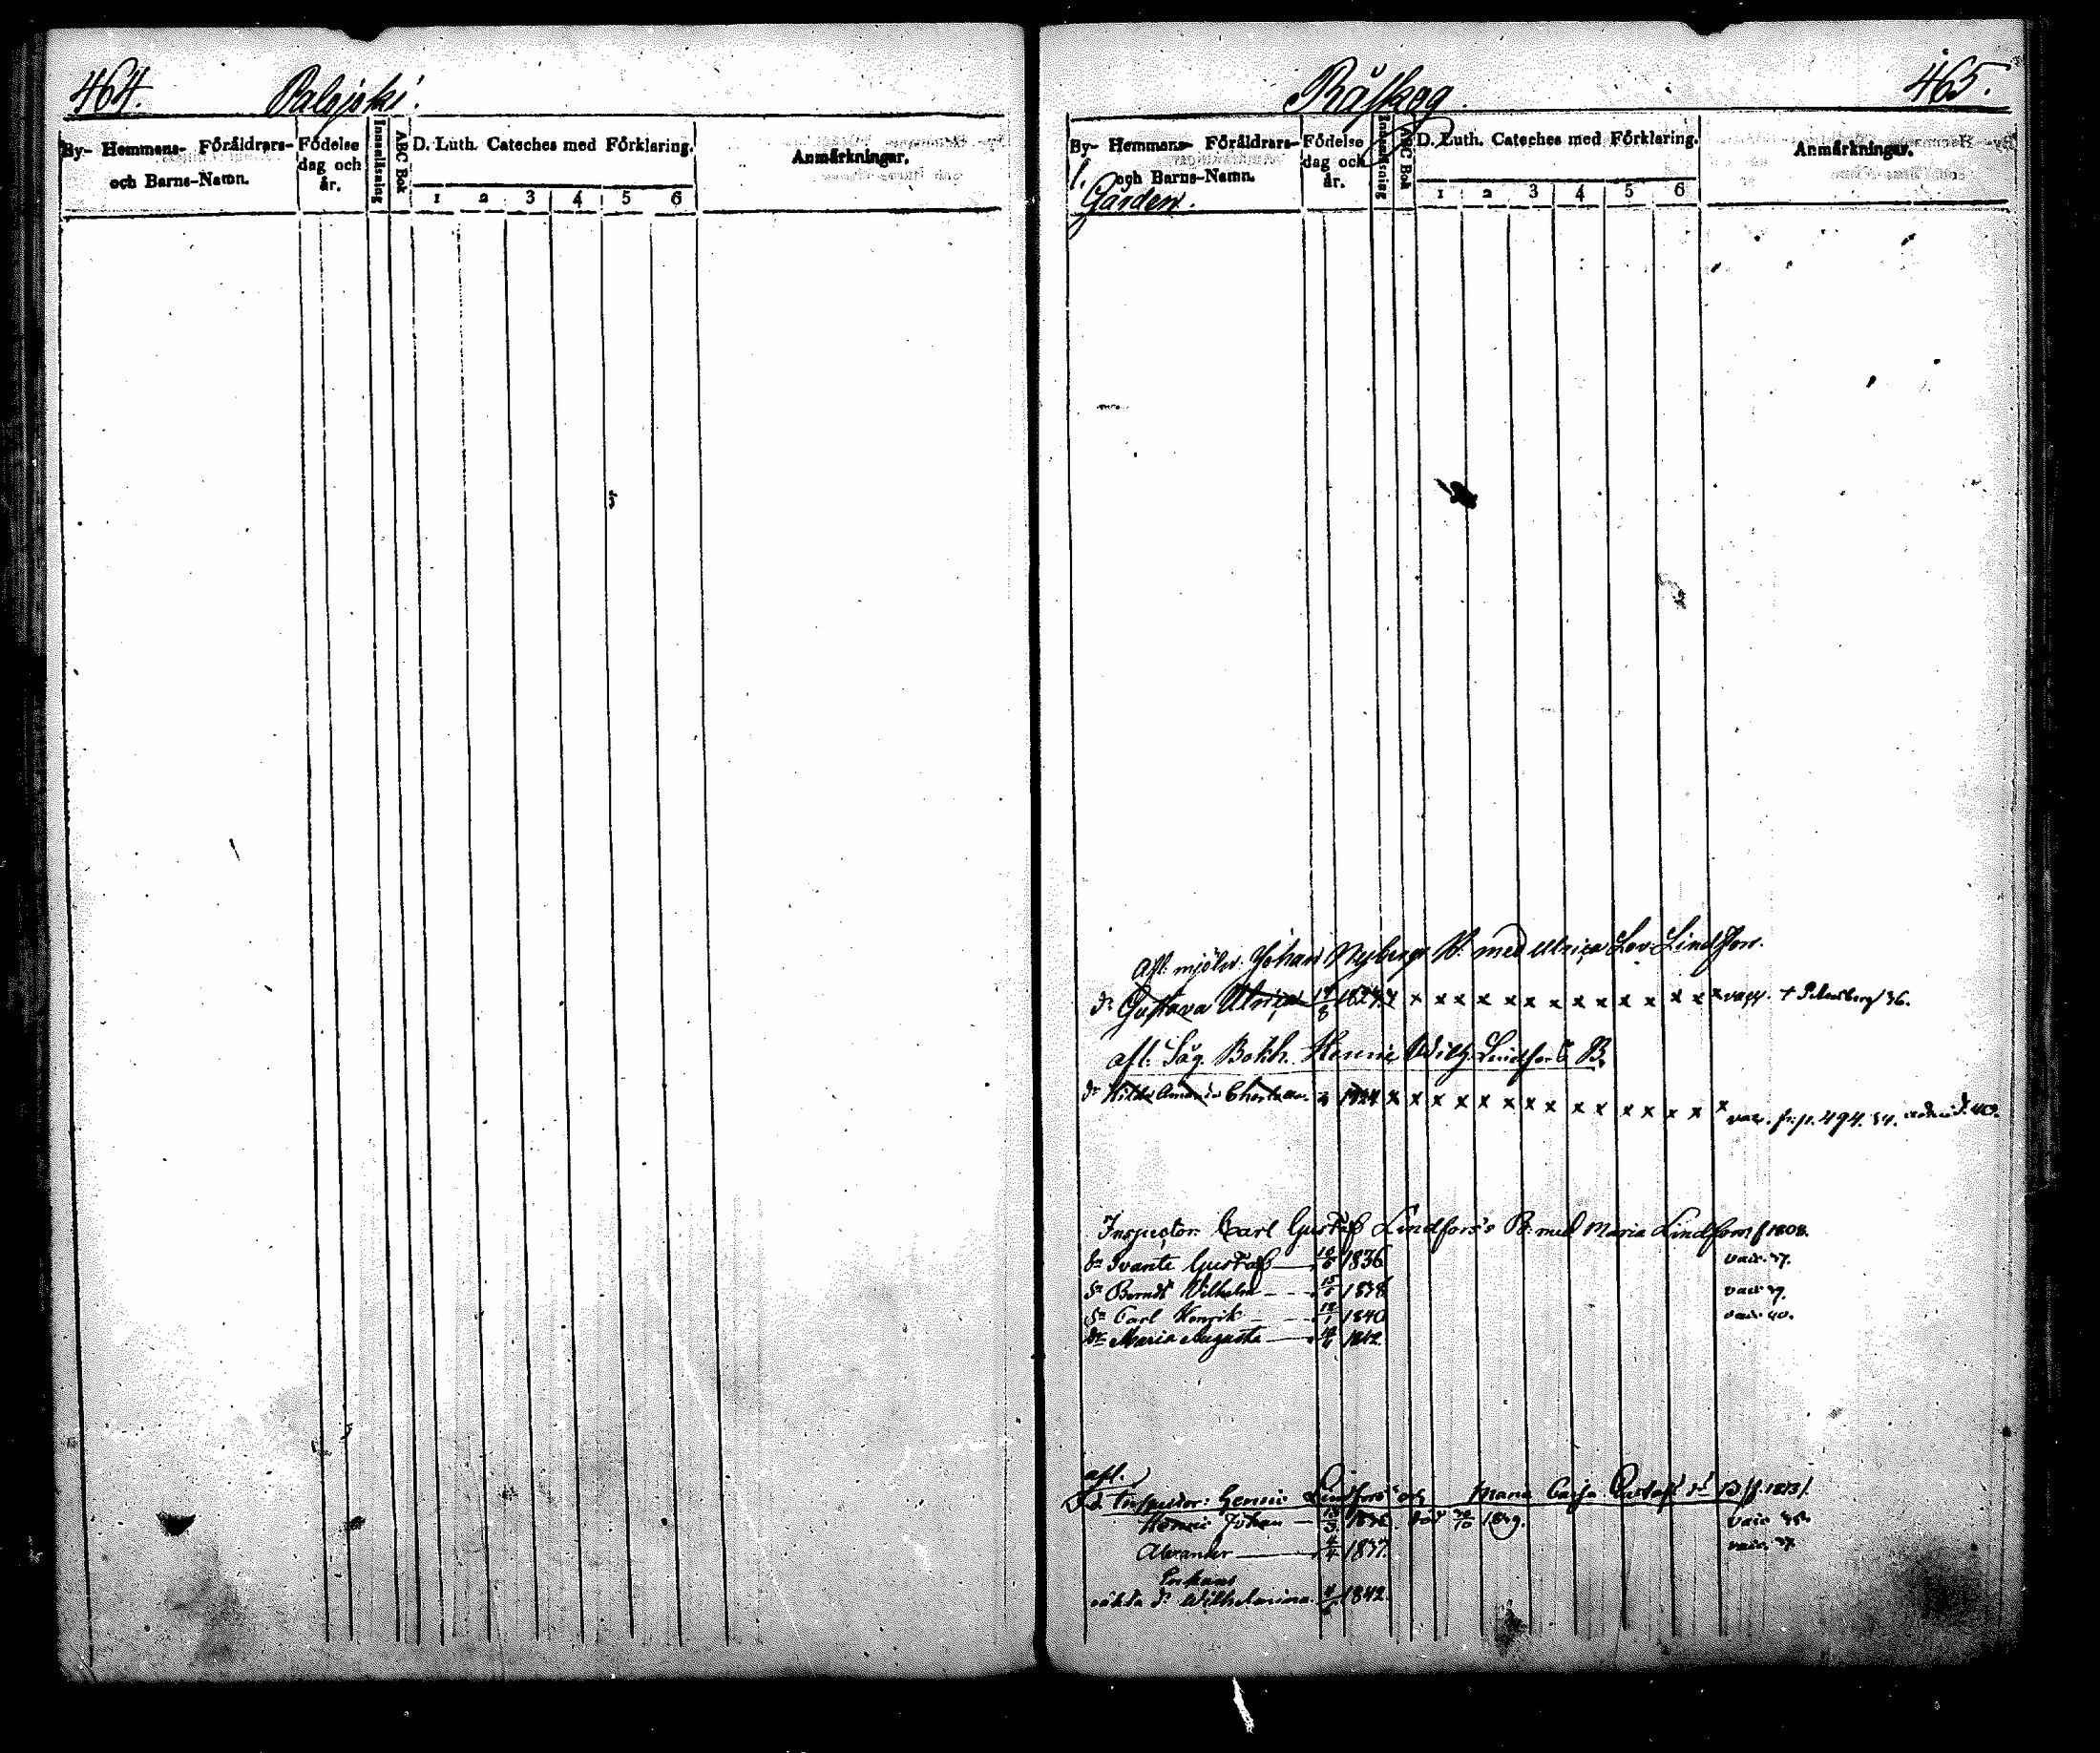 464.
Palojoki.
By- Hemmens- Föräldrars-
och Barns-Namn.
Födelse
dag och
år.
Innanläsning
ABC Bok
D. Luth. Cateches med Förklaring.
1 2 3 4 5 6
Anmärkningar.
465.
Råskog
By- Hemmans- Föräldrars-
och Barns-Namn.
1.
Gården.
Födelse
dag och
år.
Innanläsning
ABC Bok
D. Luth. Cateches med Förklaring.
1 2 3 4 5 6
Anmärkningar.
Afl. mjöln. Johan Nybergs B. med Ulrica Lov. Lindfors.
dr Gustava Ulrica 1824 x x x x x x x x x x x x x x vacc. † Petersberg 36.
afl. Såg. Bokh. Henric Wilh. Lindfors B.
dr Hilda Amanda Charlotta 1824 x x x x x x x x x x x x x x x vac. fr. p. 494. 34. 40.
Inspector Carl Gustaf Lindfors's B. med Maria Lindfors f 1808.
Sn Svante Gustaf 1836 vac. 37.
Sn Berndt Vilhelm 15 1838 vac. 39.
Sn Carl Henrik 1840 vac. 40.
dr Maria Augusta 1842.
afl.
Inspector: Henric Lindfors och Maria Caisa Gustafsdr B f. 1813.
Henric Johan död 1839. vac.
Alexander 4 1837. vac. 37
Enkans
oäkta dr Wilhelmina 1842.